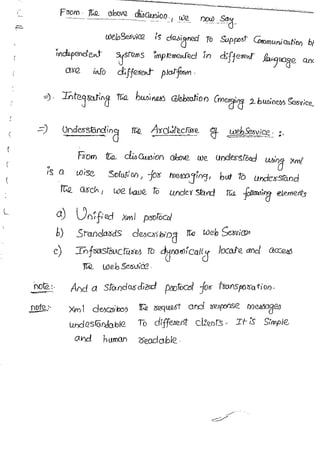 From the above discussion, we now say.
webService is designed To Support Communication b/
independent systems implemented in different language an
are into different platform.
=). Integrating The business (merging 2 business Service.
=) Understanding The Architecture of webService :.
From the discussion above we understood using xml
is a wise Solution, for messaging, but to understand
The arch, we have To understand The following elements
a) Unified xml protocol
b) Standards describing The web Service
c) Infrastructures To dynamically locate and access
The web Service.
note:. And a Standardized protocol for transportation.
note:- Xml describes the request and response messages
understandable To different clients. It is Simple
and human readable.